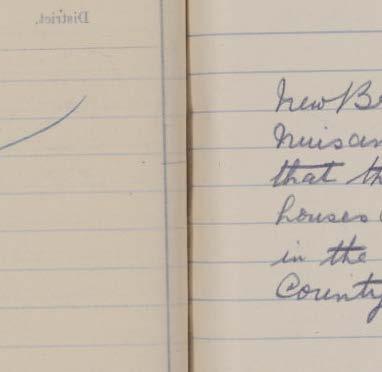 District.
New Be
Nuisan
that th
houses
in the
County